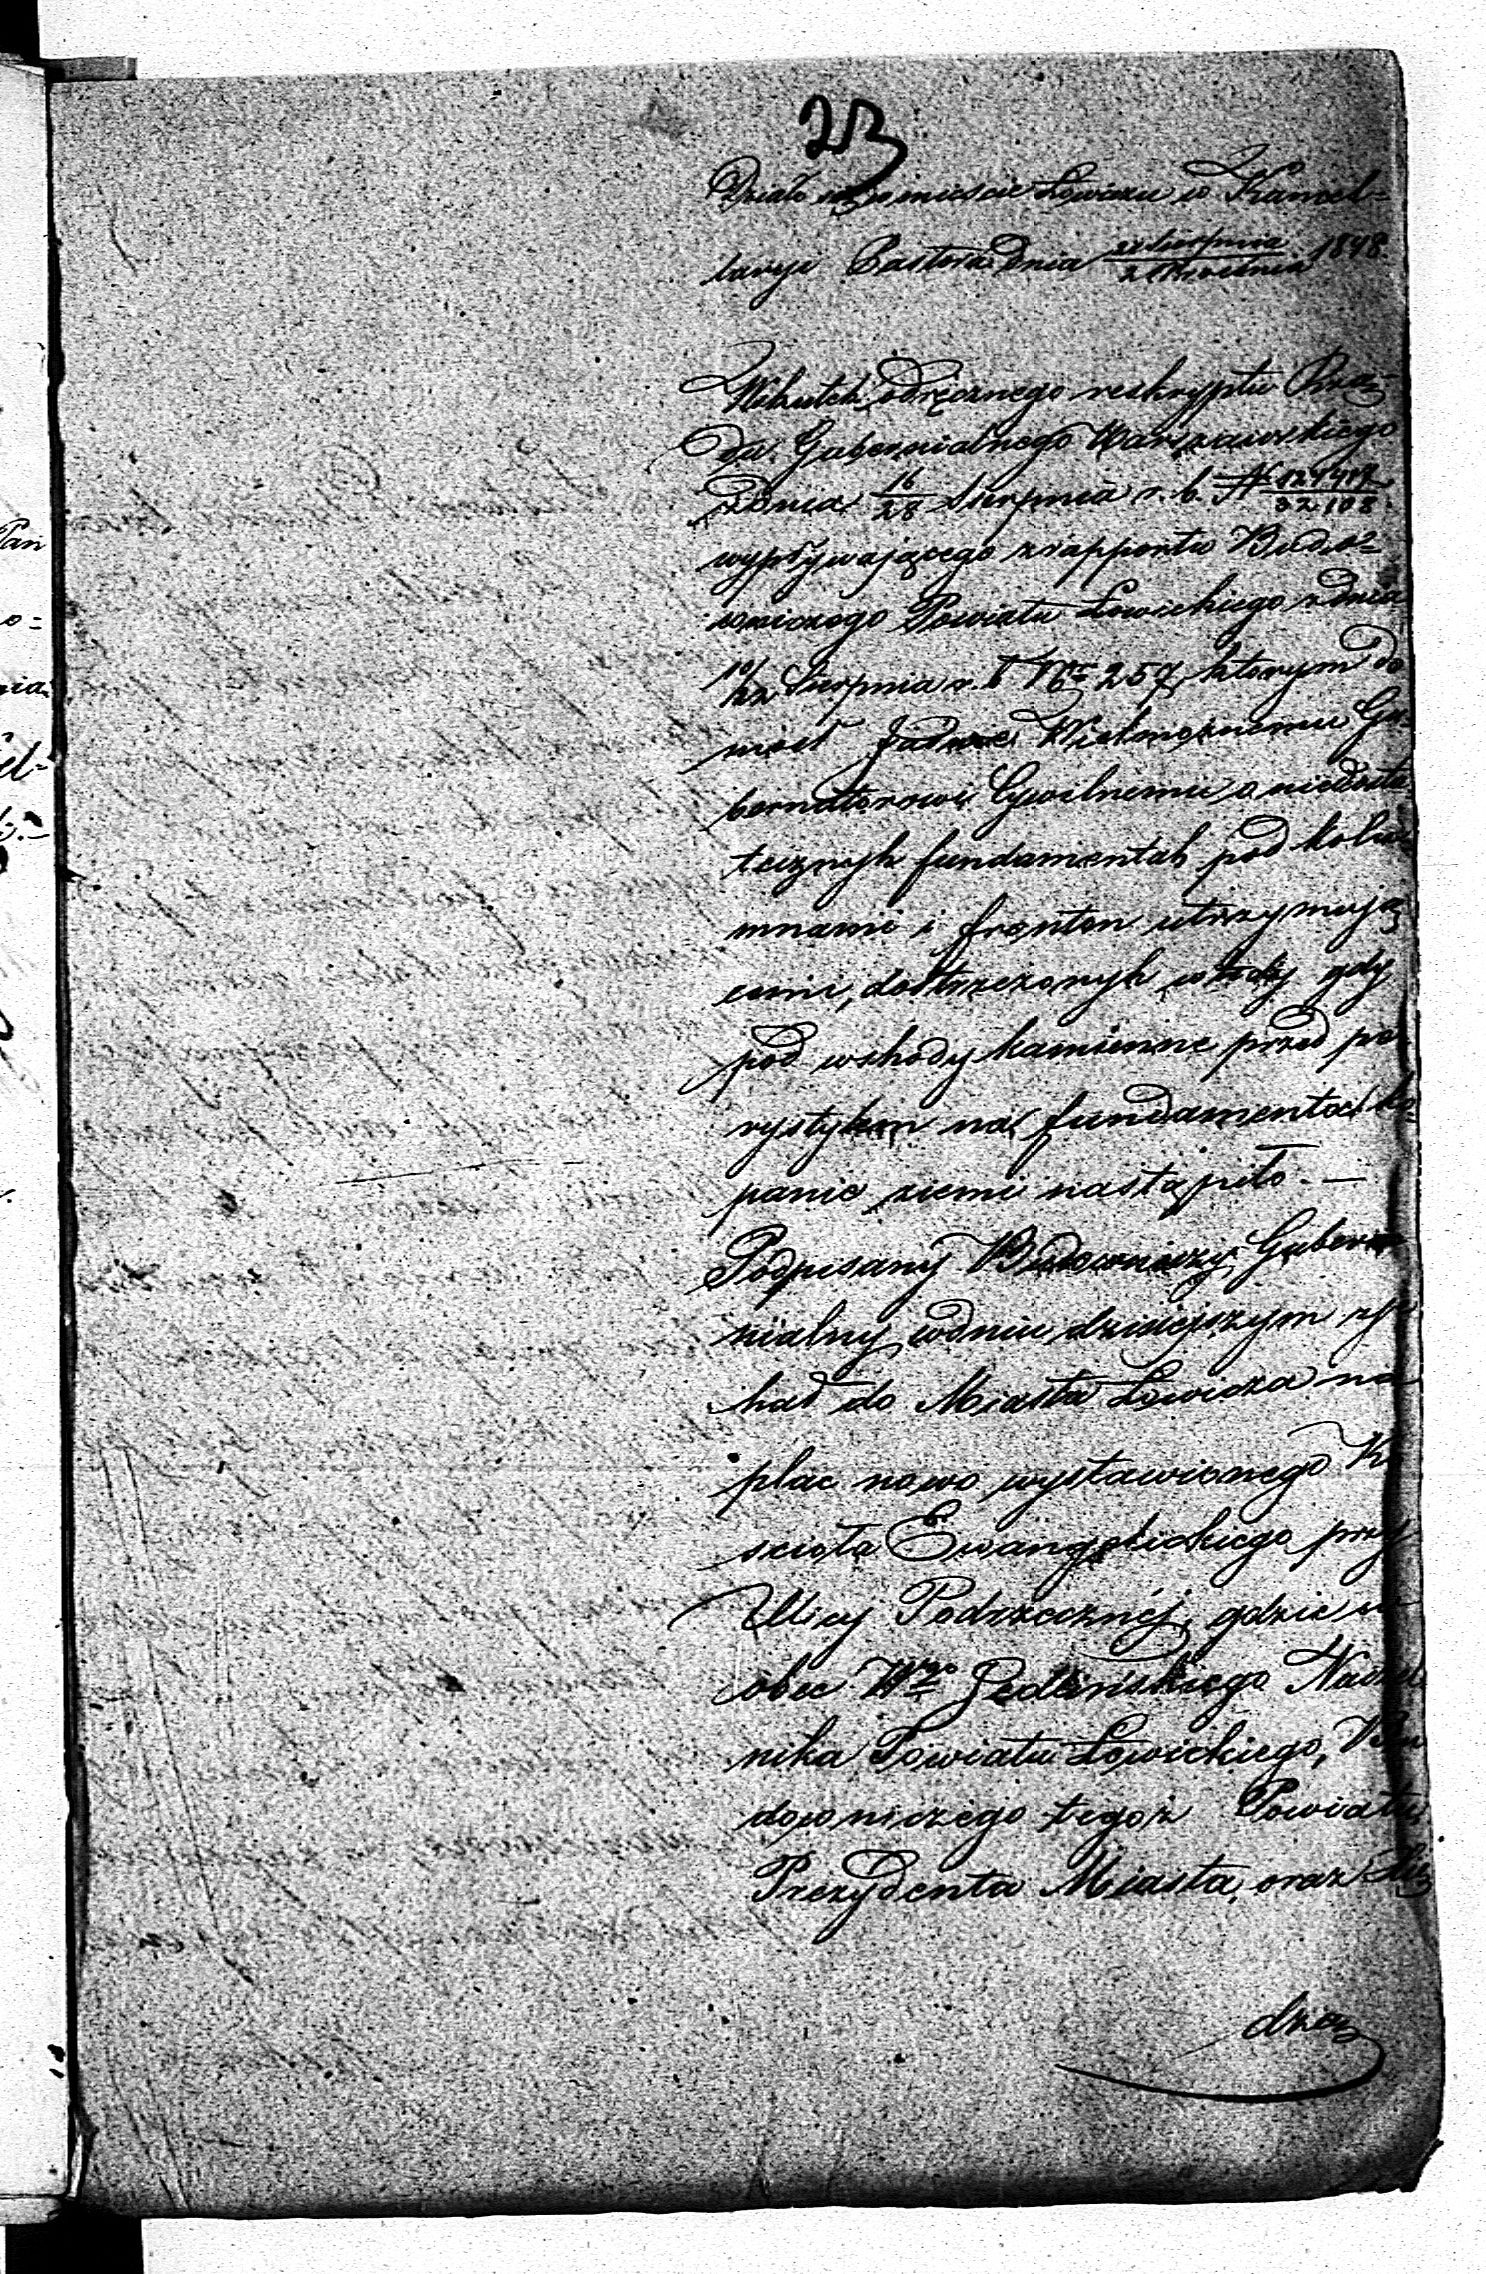 23
Działo się w mieście Łowiczu w Kancel-
laryi Pastora dnia 21 Sierpnia / 2 Września 1848.
Wskutek odręcznego reskryptu Rzą-
du Gubernialnego Warszawskiego
z dnia 16/28 Sierpnia r. b. N
wypływającego z rapportu Budo-
wniczego Powiatu Łowickiego z dnia
10/22 Sierpnia r. b. Nr 257, którym do
niósł Jaśnie Wielmożnemu Gu-
bernatorowi Cywilnemu o niedosta
tecznych fundamentach pod kolu
mnami i fronton utrzymują
cemi, dostrzeżonych wtedy gdy
pod wschody kamienne przed pe
rystylem na fundamenta ko-
panie ziemi nastąpiło. —
Podpisany Budowniczy Guber
nialny w dniu dzisiejszym zje
hał do Miasta Łowicza na
plac nowo wystawionego K
scioła Ewangelickiego przy
Ulicy Podrzecznéj, gdzie w
obec Wgo Jedlińskiego Naczel
nika Powiatu Łowickiego, Bu
downiczego tegoż Powiatu,
Prezydenta Miasta, oraz